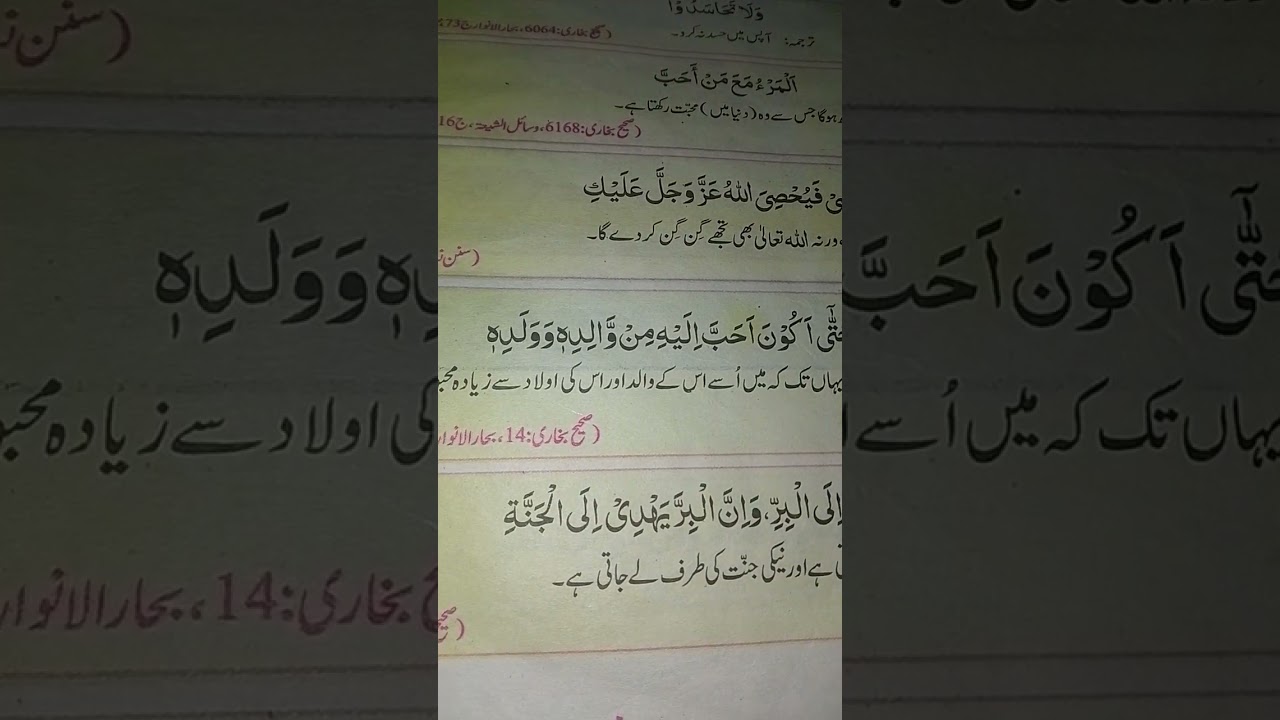 وَلَا تَحَاسَدُوْا
ترجمہ: آپس میں حسد نہ کرو۔
(صحیح بخاری: 6064، بحار الانوار ج 73
اَلْمَرْءُ مَعَ مَنْ أَحَبَّ
ہوگا جس سے وہ (دنیا میں) محبّت رکھتا ہے۔
(صحیح بخاری: 6168، وسائل الشیعۃ، ج 16
فَيُحْصِيَ اللهُ عَزَّ وَجَلَّ عَلَيْكِ
ورنہ اللہ تعالیٰ بھی تجھے گِن گِن کر دے گا۔
(سنن
حَتّٰٓى اَكُوْنَ اَحَبَّ اِلَيْهِ مِنْ وَّالِدِهٖ وَوَلَدِهٖ
یہاں تک کہ میں اُسے اس کے والد اور اس کی اولاد سے زیادہ
(صحیح بخاری: 14، بحار الانوار
اِلَى الْبِرِّ، وَاِنَّ الْبِرَّ يَهْدِيْ اِلَى الْجَنَّةِ
ہے اور نیکی جنّت کی طرف لے جاتی ہے۔